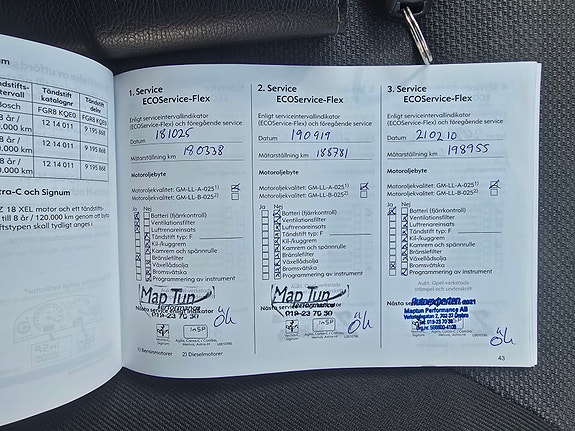 num
Tändstifts-
intervall
Tändstift
katalognr
Tändstift
delnr
Bosch
FGR8 KQE0
FGR8 KQE0
8 år /
0.000 km
12 14 011
9 195 868
8 år /
0.000 km
12 14 011
9 195 868
8 år /
0.000 km
12 14 011
9 195 868
tra-C och Signum
Z 18 XEL motor och ett tändstifts-
till 8 år / 120.000 km genom att byta
ftstypen skall tydligt anges i
1. Service
ECOService-Flex
Enligt serviceintervallindikator
(ECOService-Flex) och föregående service
Datum 181025
Mätarställning km 180338
Motoroljebyte
Motoroljekvalitet: GM-LL-A-025¹⁾
Motoroljekvalitet: GM-LL-B-025²⁾
Ja Nej
Batteri (fjärrkontroll)
Ventilationsfilter
Luftrenareinsats
Tändstift typ: F
Kil-/kuggrem
Kamrem och spännrulle
Bränslefilter
Växellådsolja
Bromsvätska
Programmering av instrument
Map Tun
Performance
019-23 70 30
Nästa service enligt indikator
InSP
Agila, Corsa-C / Combo,
Meriva, Astra-H
1) Bensinmotorer 2) Dieselmotorer
2. Service
ECOService-Flex
Enligt serviceintervallindikator
(ECOService-Flex) och föregående service
Datum 190919
Mätarställning km 185781
Motoroljebyte
Motoroljekvalitet: GM-LL-A-025¹⁾
Motoroljekvalitet: GM-LL-B-025²⁾
Ja Nej
Batteri (fjärrkontroll)
Ventilationsfilter
Luftrenareinsats
Tändstift typ: F
Kil-/kuggrem
Kamrem och spännrulle
Bränslefilter
Växellådsolja
Bromsvätska
Programmering av instrument
Map Tun
Performance
019-23 70 30
InSP
Agila, Corsa-C / Combo,
Meriva, Astra-H
3. Service
ECOService-Flex
Enligt serviceintervallindikator
(ECOService-Flex) och föregående service
Datum 210210
Mätarställning km 198955
Motoroljebyte
Motoroljekvalitet: GM-LL-A-025¹⁾
Motoroljekvalitet: GM-LL-B-025²⁾
Ja Nej
Batteri (fjärrkontroll)
Ventilationsfilter
Luftrenareinsats
Tändstift typ: F
Kil-/kuggrem
Kamrem och spännrulle
Bränslefilter
Växellådsolja
Bromsvätska
Programmering av instrument
Aukt. Opel-verkstads
stämpel och underskrift
Nästa service
Autoexperten
Maptun Performance AB
Tel. 019-23 70 30
Agila, Corsa-C / Combo,
Meriva, Astra-H
43